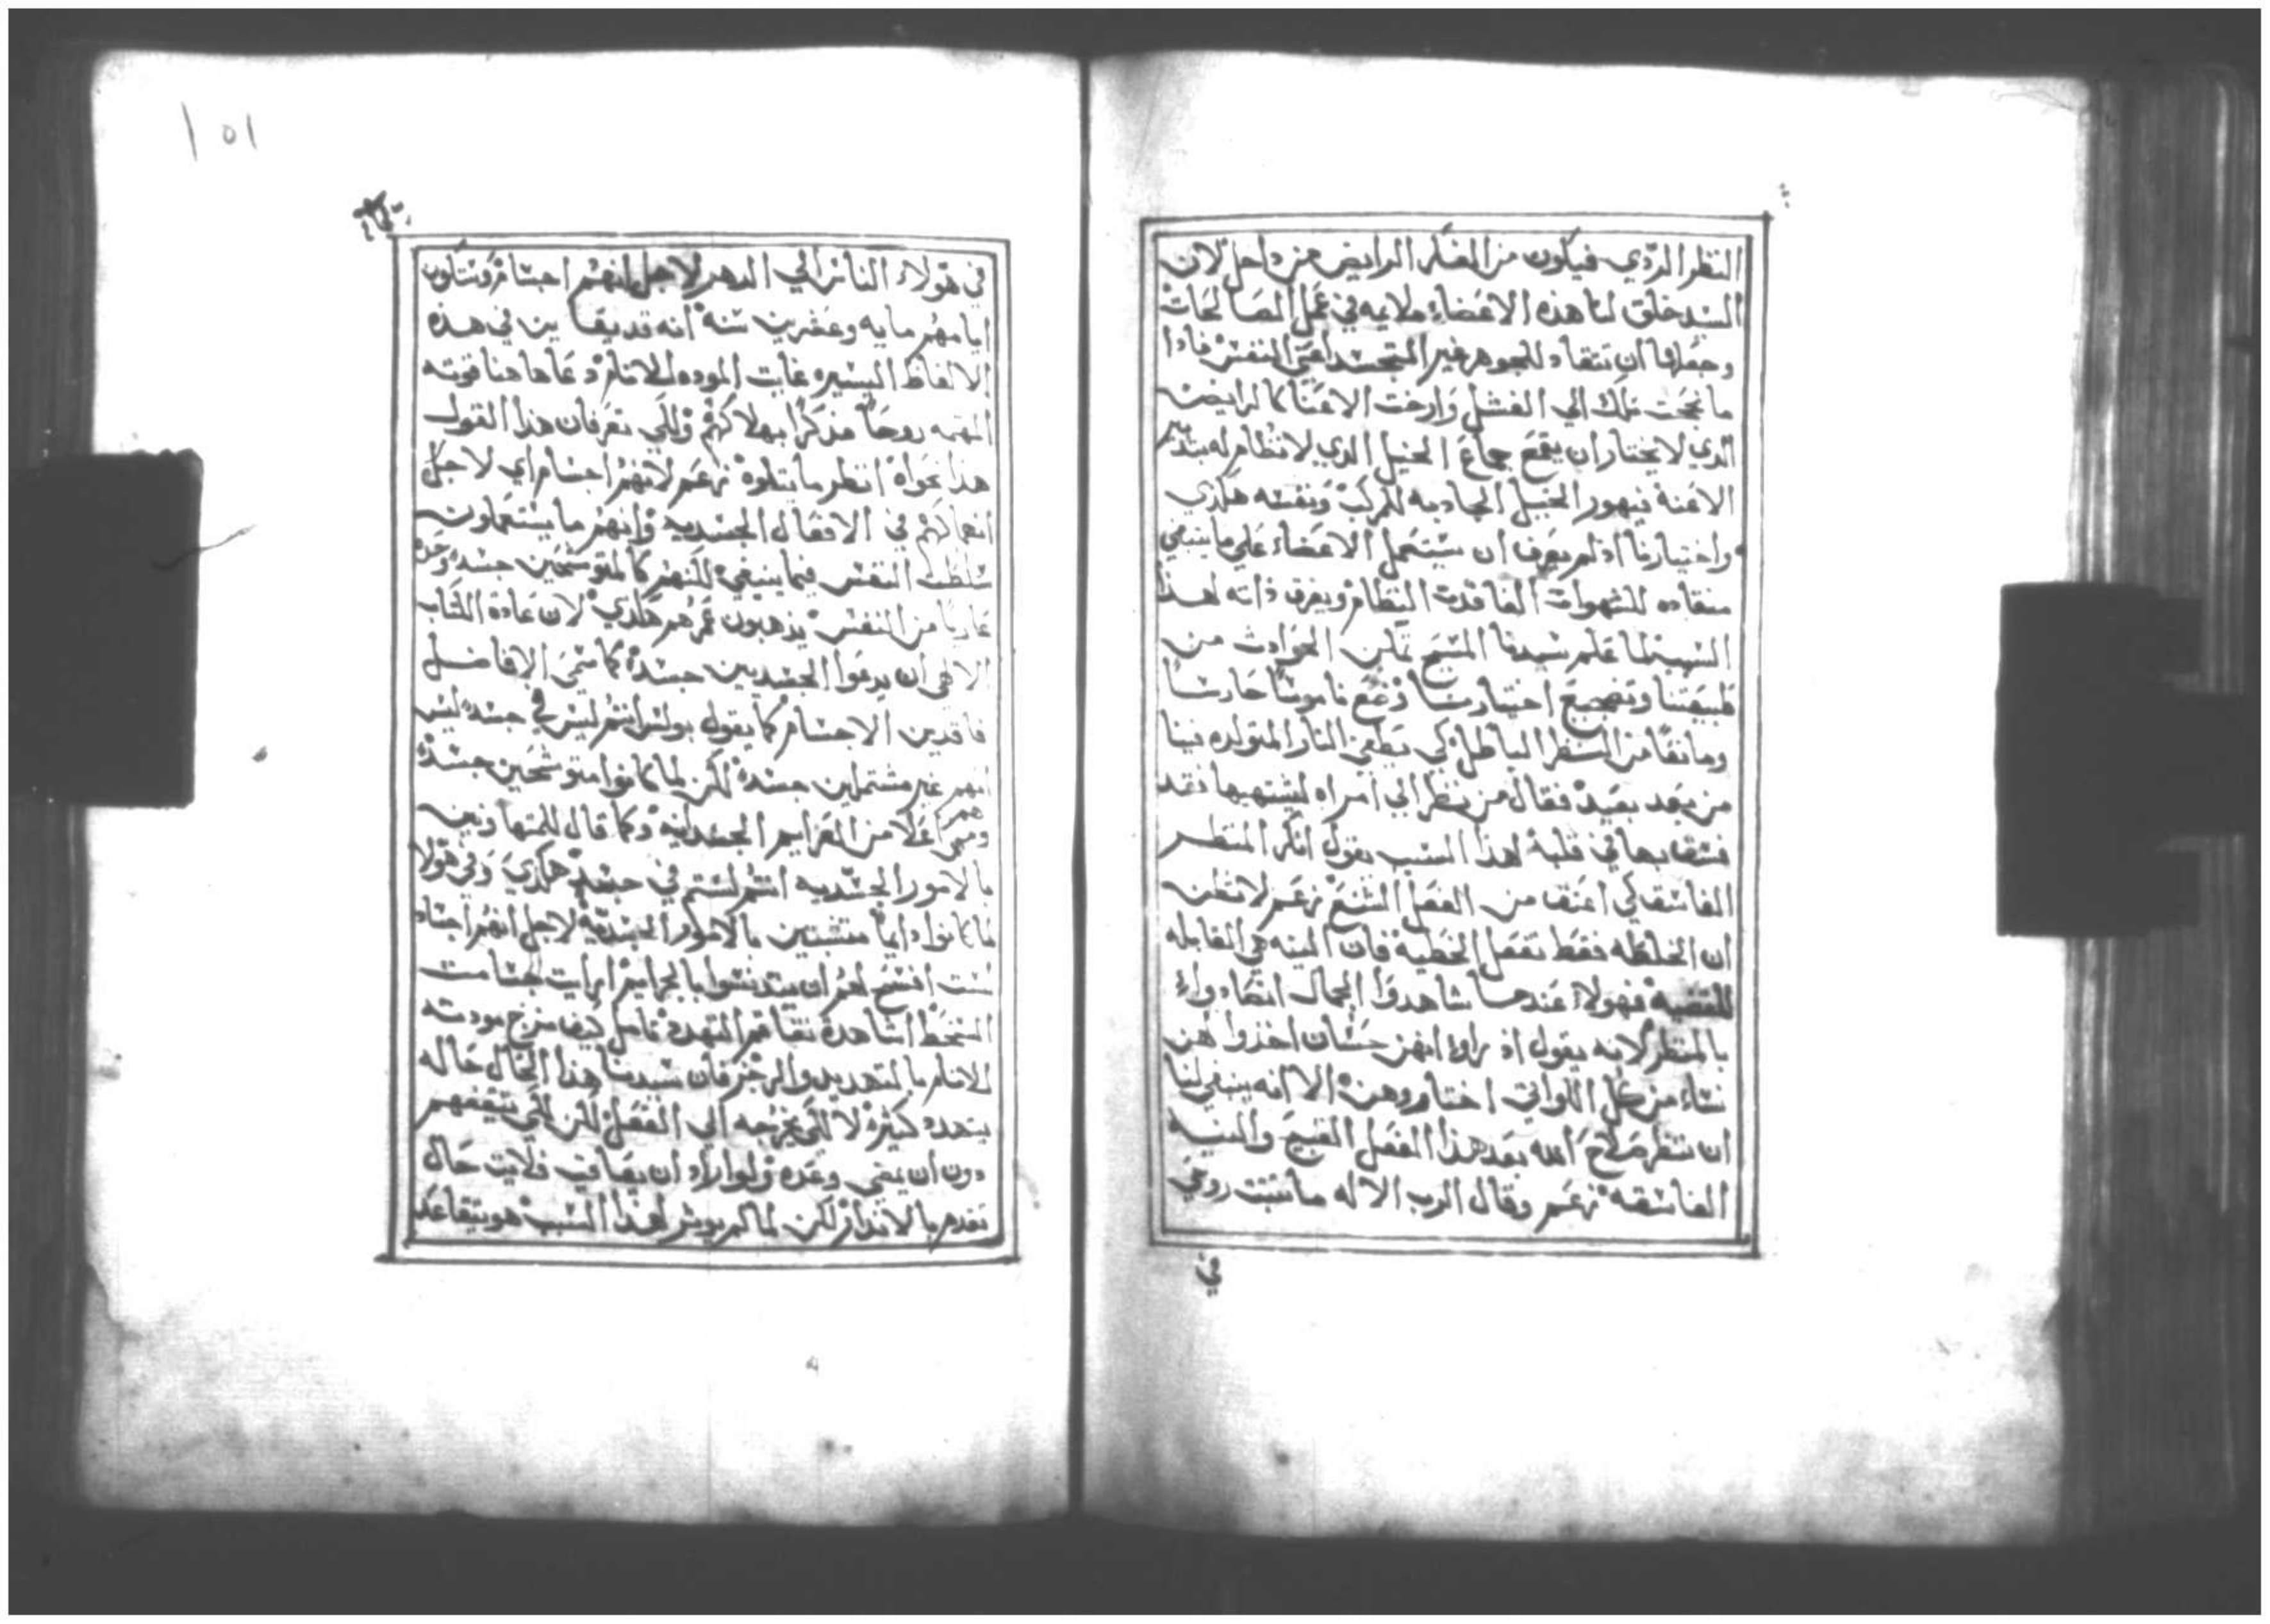 النظر الردي فيكون من الفكر الرايض من داخل لان
السيد خلق لنا هذه الاعضاء ملايمه في عمل الصالحات
وجعلها ان تنقاد للجوهر غير المتجسد اعني النفس فاذا
ما نجحت تلك الي الفشل وارخت الاعنا كالرايض
الدي لا يختار ان يقمع جماع الخيل الدي لا نظام له بتدبير
الاعنه فيهور الخيل الجادبه للمركب ونفسه هكدي
واختيارنا اذ لم يعرف ان يستعمل الاعضاء علي ما ينبغي
منقاده للشهوات الفاقدت النظام ويغرق ذاته لهذا
السبب لما علم سيدنا المسيح الحوادث من
طبيعتنا وتضجيع اختيارنا وضع ناموسا حارسا
ومانعا من النظر الباطل كي يطفي النار المتولده فينا
من بعد بعيد فقال من ينظر الي امراه ليشتهيها فقد
فسق بها في قلبه لهذا السبب يقول انكر المنظر
الفاسق لكي اعتق من الفعل الشنع نعم لا تظن
ان الخلطه فقط تفعل الخطيه فان النيه هي القابله
للقضيه فهولا عندما شاهدوا الجمال انصادوا
بالمنظر لانه يقول اذ راوا انهن حسان اخذوا لهن
نساء من كل اللواتي اختاروهن الا انه ينبغي لنا
ان ننظر صلاح الله بعد هذا الفعل القبيح والنيه
الفاسقه نعم وقال الرب الاله ما تثبت روحي
في
101
في هولاء الناس الي الدهر لاجل انهم اجسام وستكون
ايامهم مايه وعشرين سنه انه قد يقاين في هذه
الالفاظ اليسيره غايت الموده للانام دعا هاهنا قوته
المهتمه روحا مذكرا بهلاكهم ولكي تعرف ان هذا القول
هذا نحواه انظر ما يتلوه نعم لانهم اجسام اي لاجل
انهماكهم في الافعال الجسديه وانهم ما يستعملون
سلطت النفس فيما ينبغي لكنهم كالمتوشحين جسد وحده
عاريا من النفس يذهبون عمرهم هكدي لان عادة الكتاب
الالاهي ان يدعوا الجسديين جسدا كما سمي الافاضل
فاقدين الاجسام كما يقول بولس انتم ليس في جسد ليس
انهم غير مشتملين جسدا لكن لما كانوا متوشحين جسدا
وهم اعلا من العزايم الجسدانيه وكما قال للمتهاونين
بالامور الجسديه انتم لستم في جسد هكدي وفي هولا
لما كانوا دايما متشبتين بالامور الجسديه لاجل انهم اجساد
لست افسح لهم ان يتدنسوا بالجرايم ارايت جسامت
السخط اشاهدة تفاقم التهدد تامل كيف مزج مودته
للانام بالتهديد والرجز فان سيدنا هذا الحال حاله
يتهدد كثيرا لا لكي يخرجه الي الفعل لكن لكي يثقفهم
دون ان يمضي وعده ولو اراد ان يعاقب فلايت حال
تقدم بالانذار لكن لما لم يوثر لهذا السبب هو يتقاعد